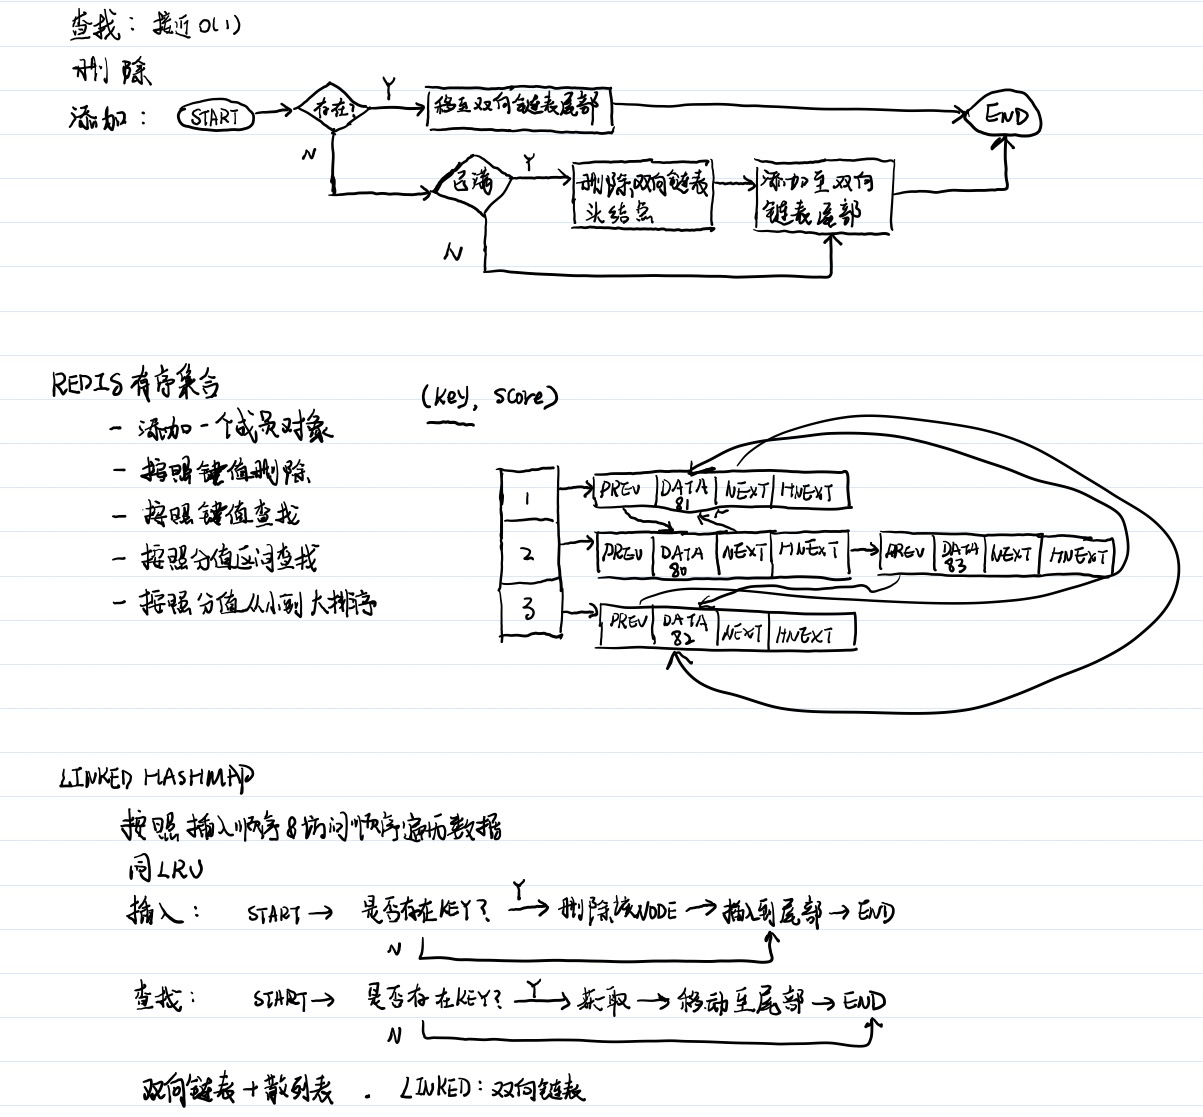 查找: 接近 O(1)
删除
添加: START 存在? Y 移至双向链表尾部 END
N 已满 Y 删除双向链表头结点 添加至双向链表尾部
N
REDIS 有序集合 (key, score)
- 添加一个成员对象
- 按照键值删除
- 按照键值查找
- 按照分值区间查找
- 按照分值从小到大排序
1 PREV DATA 81 NEXT HNEXT
2 PREV DATA 80 NEXT HNEXT PREV DATA 83 NEXT HNEXT
3 PREV DATA 82 NEXT HNEXT
LINKED HASHMAP
按照插入顺序&访问顺序遍历数据
同LRU
插入: START → 是否存在KEY? Y → 删除该NODE → 插入到尾部 → END
N
查找: START → 是否存在KEY? Y → 获取 → 移动至尾部 → END
N
双向链表 + 散列表. LINKED: 双向链表